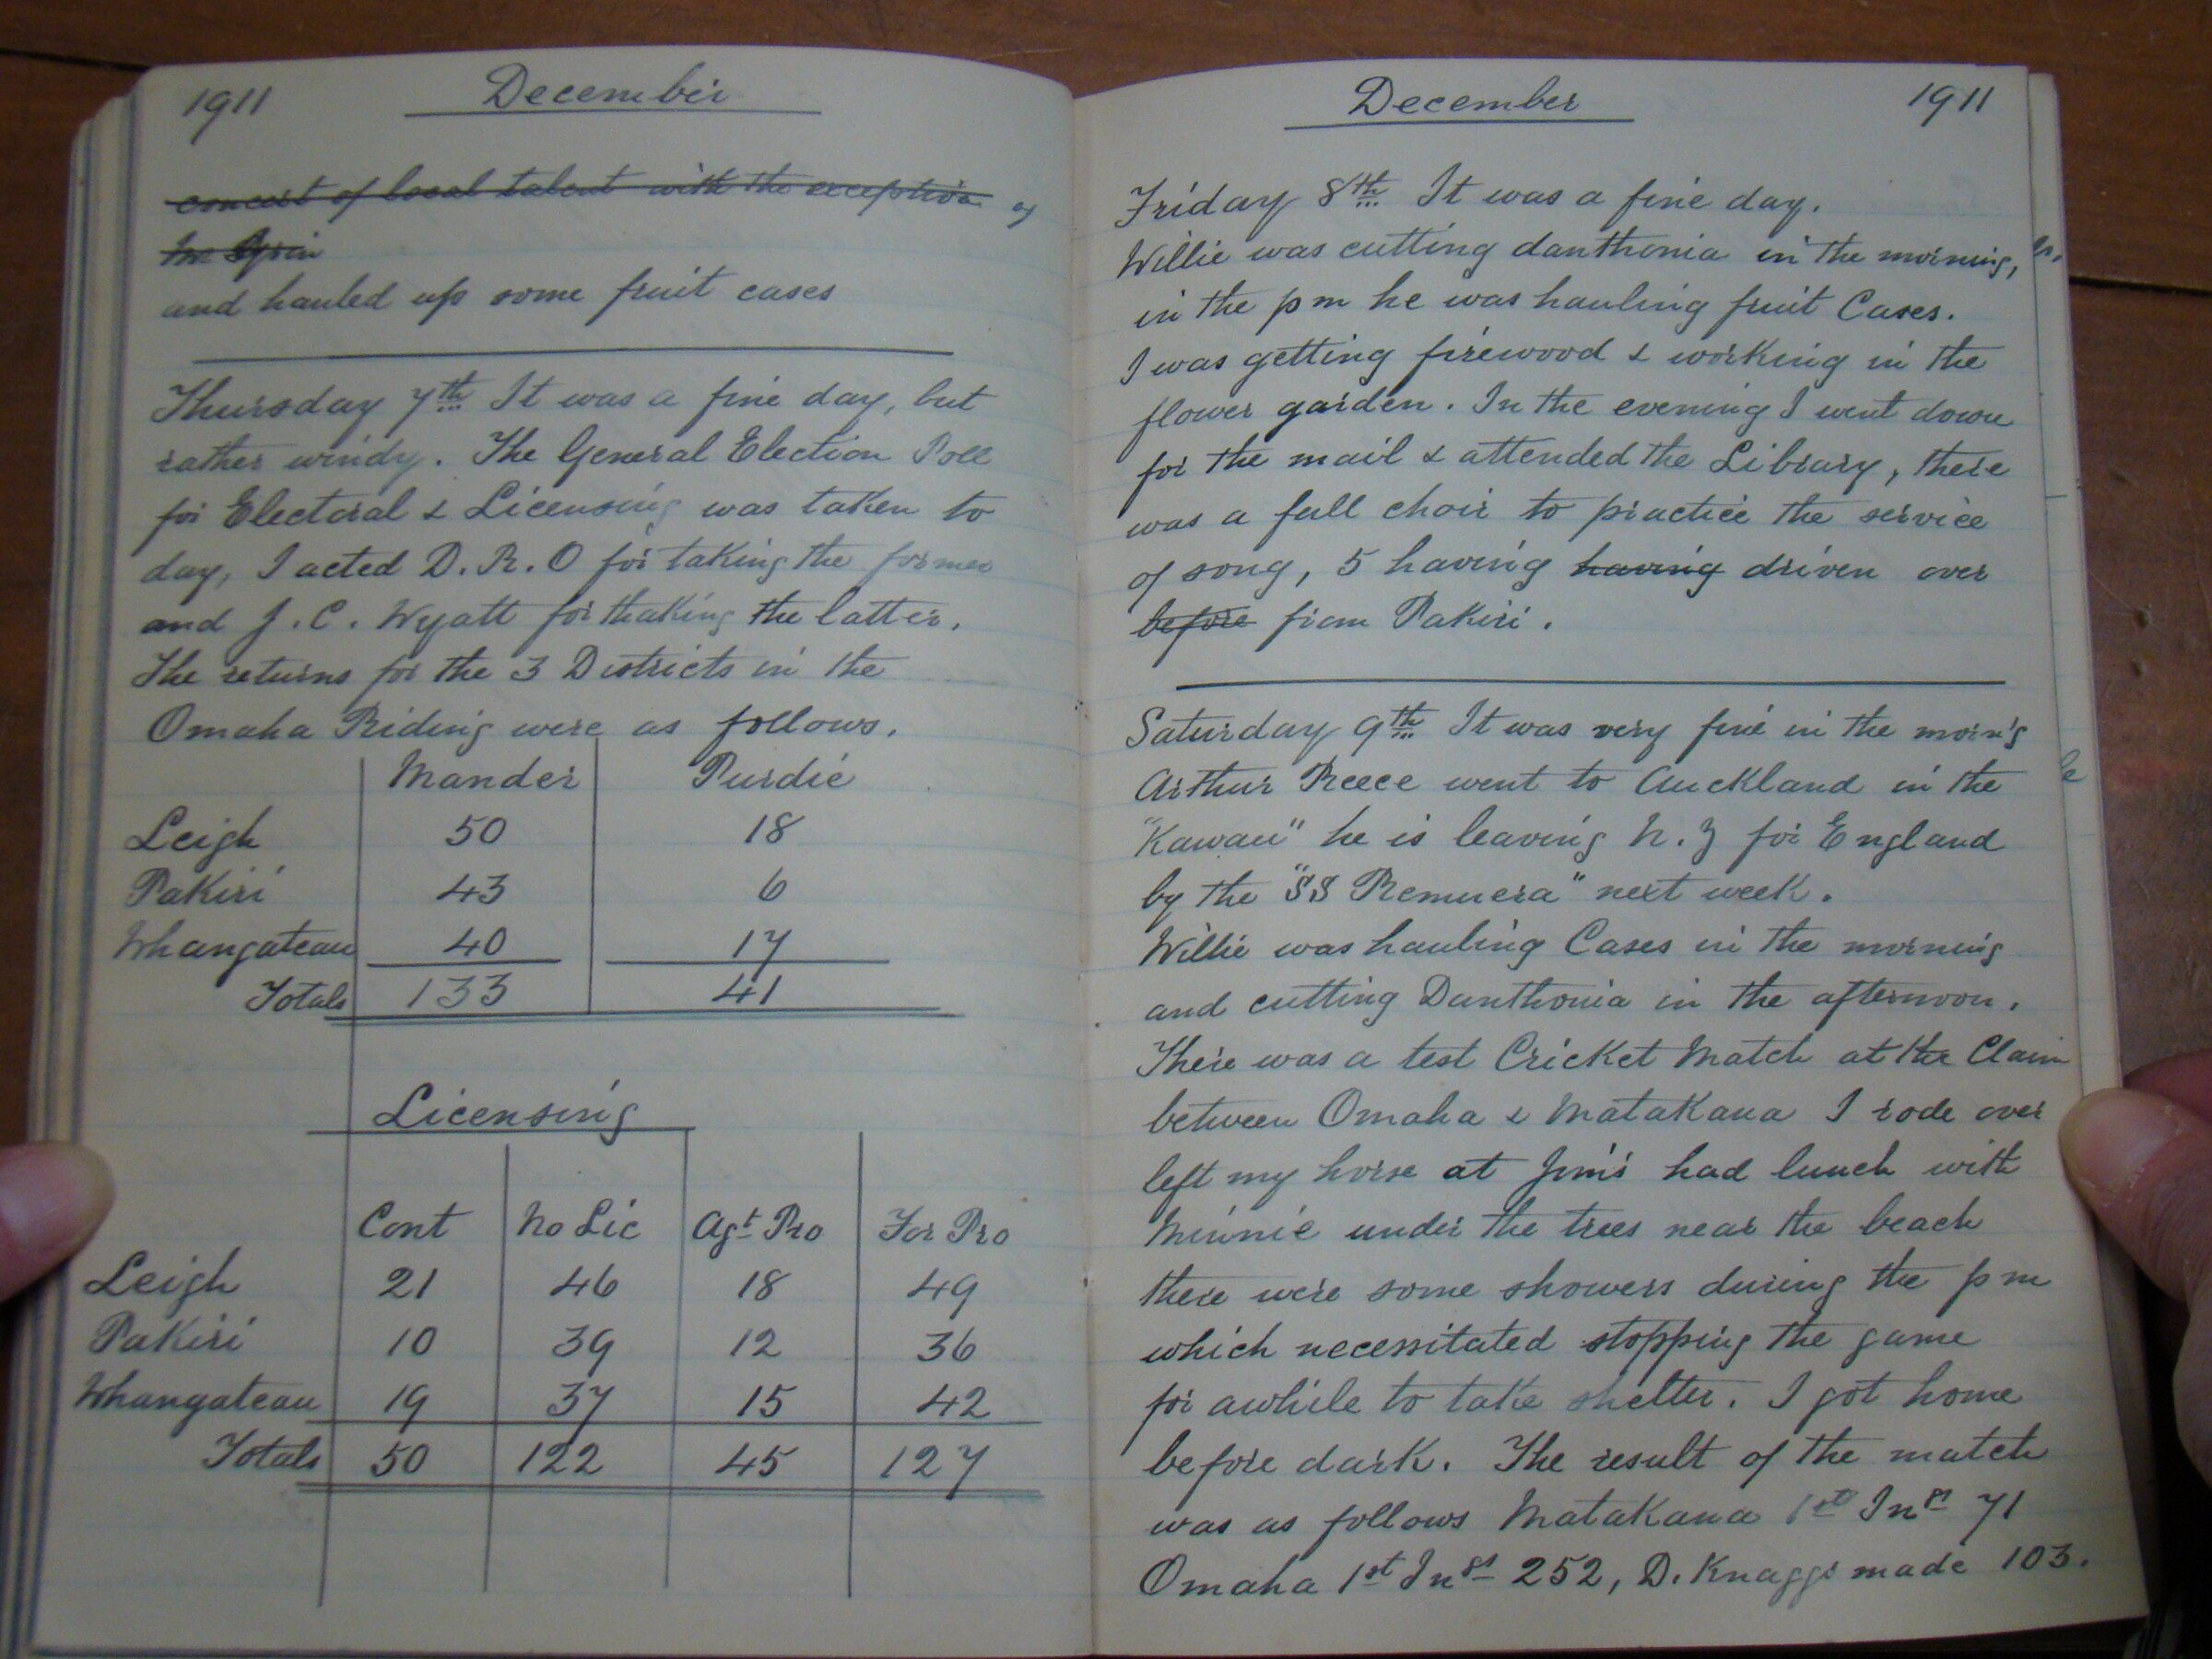 1911 December
concert of local talent with the exception of
and hauled up some fruit cases
Thursday 7th It was a fine day, but
rather windy. The General Election Poll
for Electoral & Licensing was taken to
day, I acted D. R. O for taking the former
and J. C. Wyatt for thaking the latter.
The returns for the 3 Districts in the
Omaha Riding were as follows.
Mander Purdie
Leigh 50 18
Pakiri 43 6
Whangateau 40 17
Totals 133 41
Licensing
Cont No Lic Agt Pro For Pro
Leigh 21 46 18 49
Pakiri 10 39 12 36
Whangateau 19 37 15 42
Totals 50 122 45 127
December 1911
Friday 8th It was a fine day.
Willie was cutting danthonia in the morning,
in the pm he was hauling fruit Cases.
I was getting firewood & working in the
flower garden. In the evening I went down
for the mail & attended the Library, there
was a full choir to practice the service
of song, 5 having having driven over
before from Pakiri.
Saturday 9th It was very fine in the morn'g
Arthur Reece went to Auckland in the
"Kawau" he is leaving N. Z for England
by the "SS Remuera" next week.
Willie was hauling Cases in the morning
and cutting Danthonia in the afternoon.
There was a test Cricket Match at the Claim
between Omaha & Matakana I rode over
left my horse at Jim's had lunch with
Minnie under the trees near the beach
there were some showers during the pm
which necessitated stopping the game
for awhile to take shelter. I got home
before dark. The result of the match
was as follows Matakana 1st Ins 71
Omaha 1st Ins 252, D. Knaggs made 103.